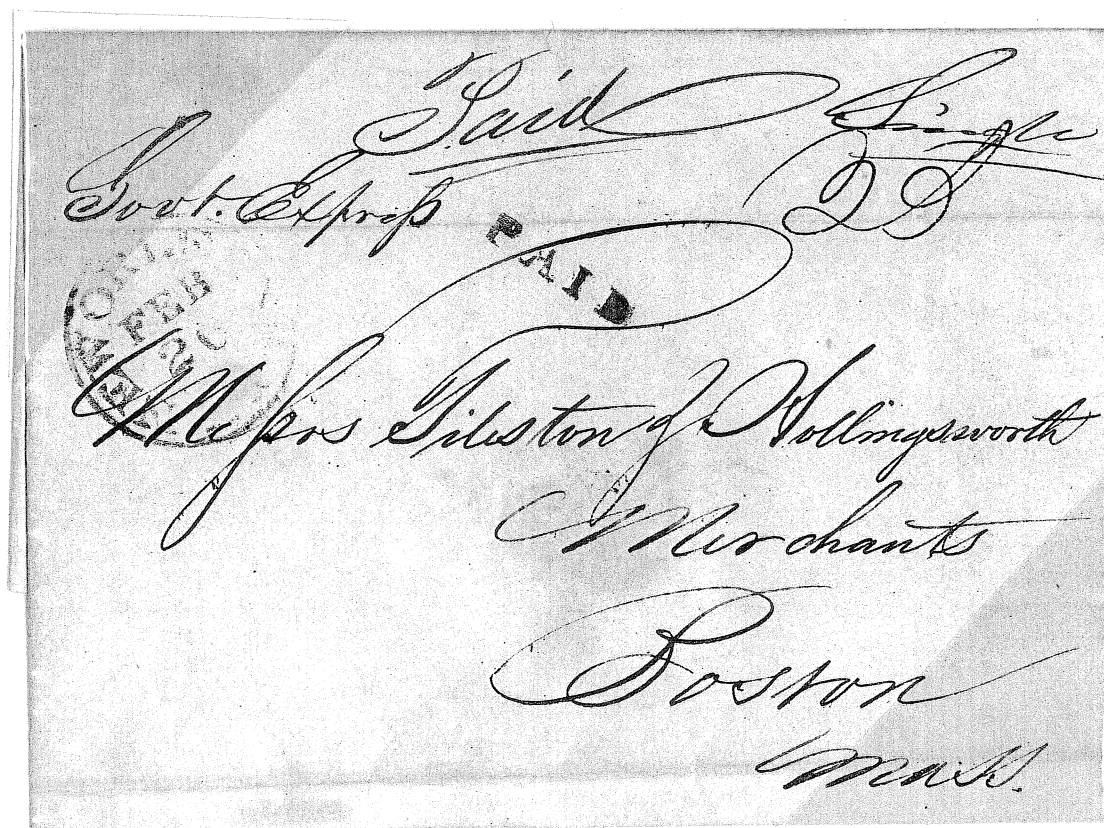 Paid Single
Govt. Express 25
PAID
FEB
Messrs Tileston & Hollingsworth
Merchants
Boston
Mass.